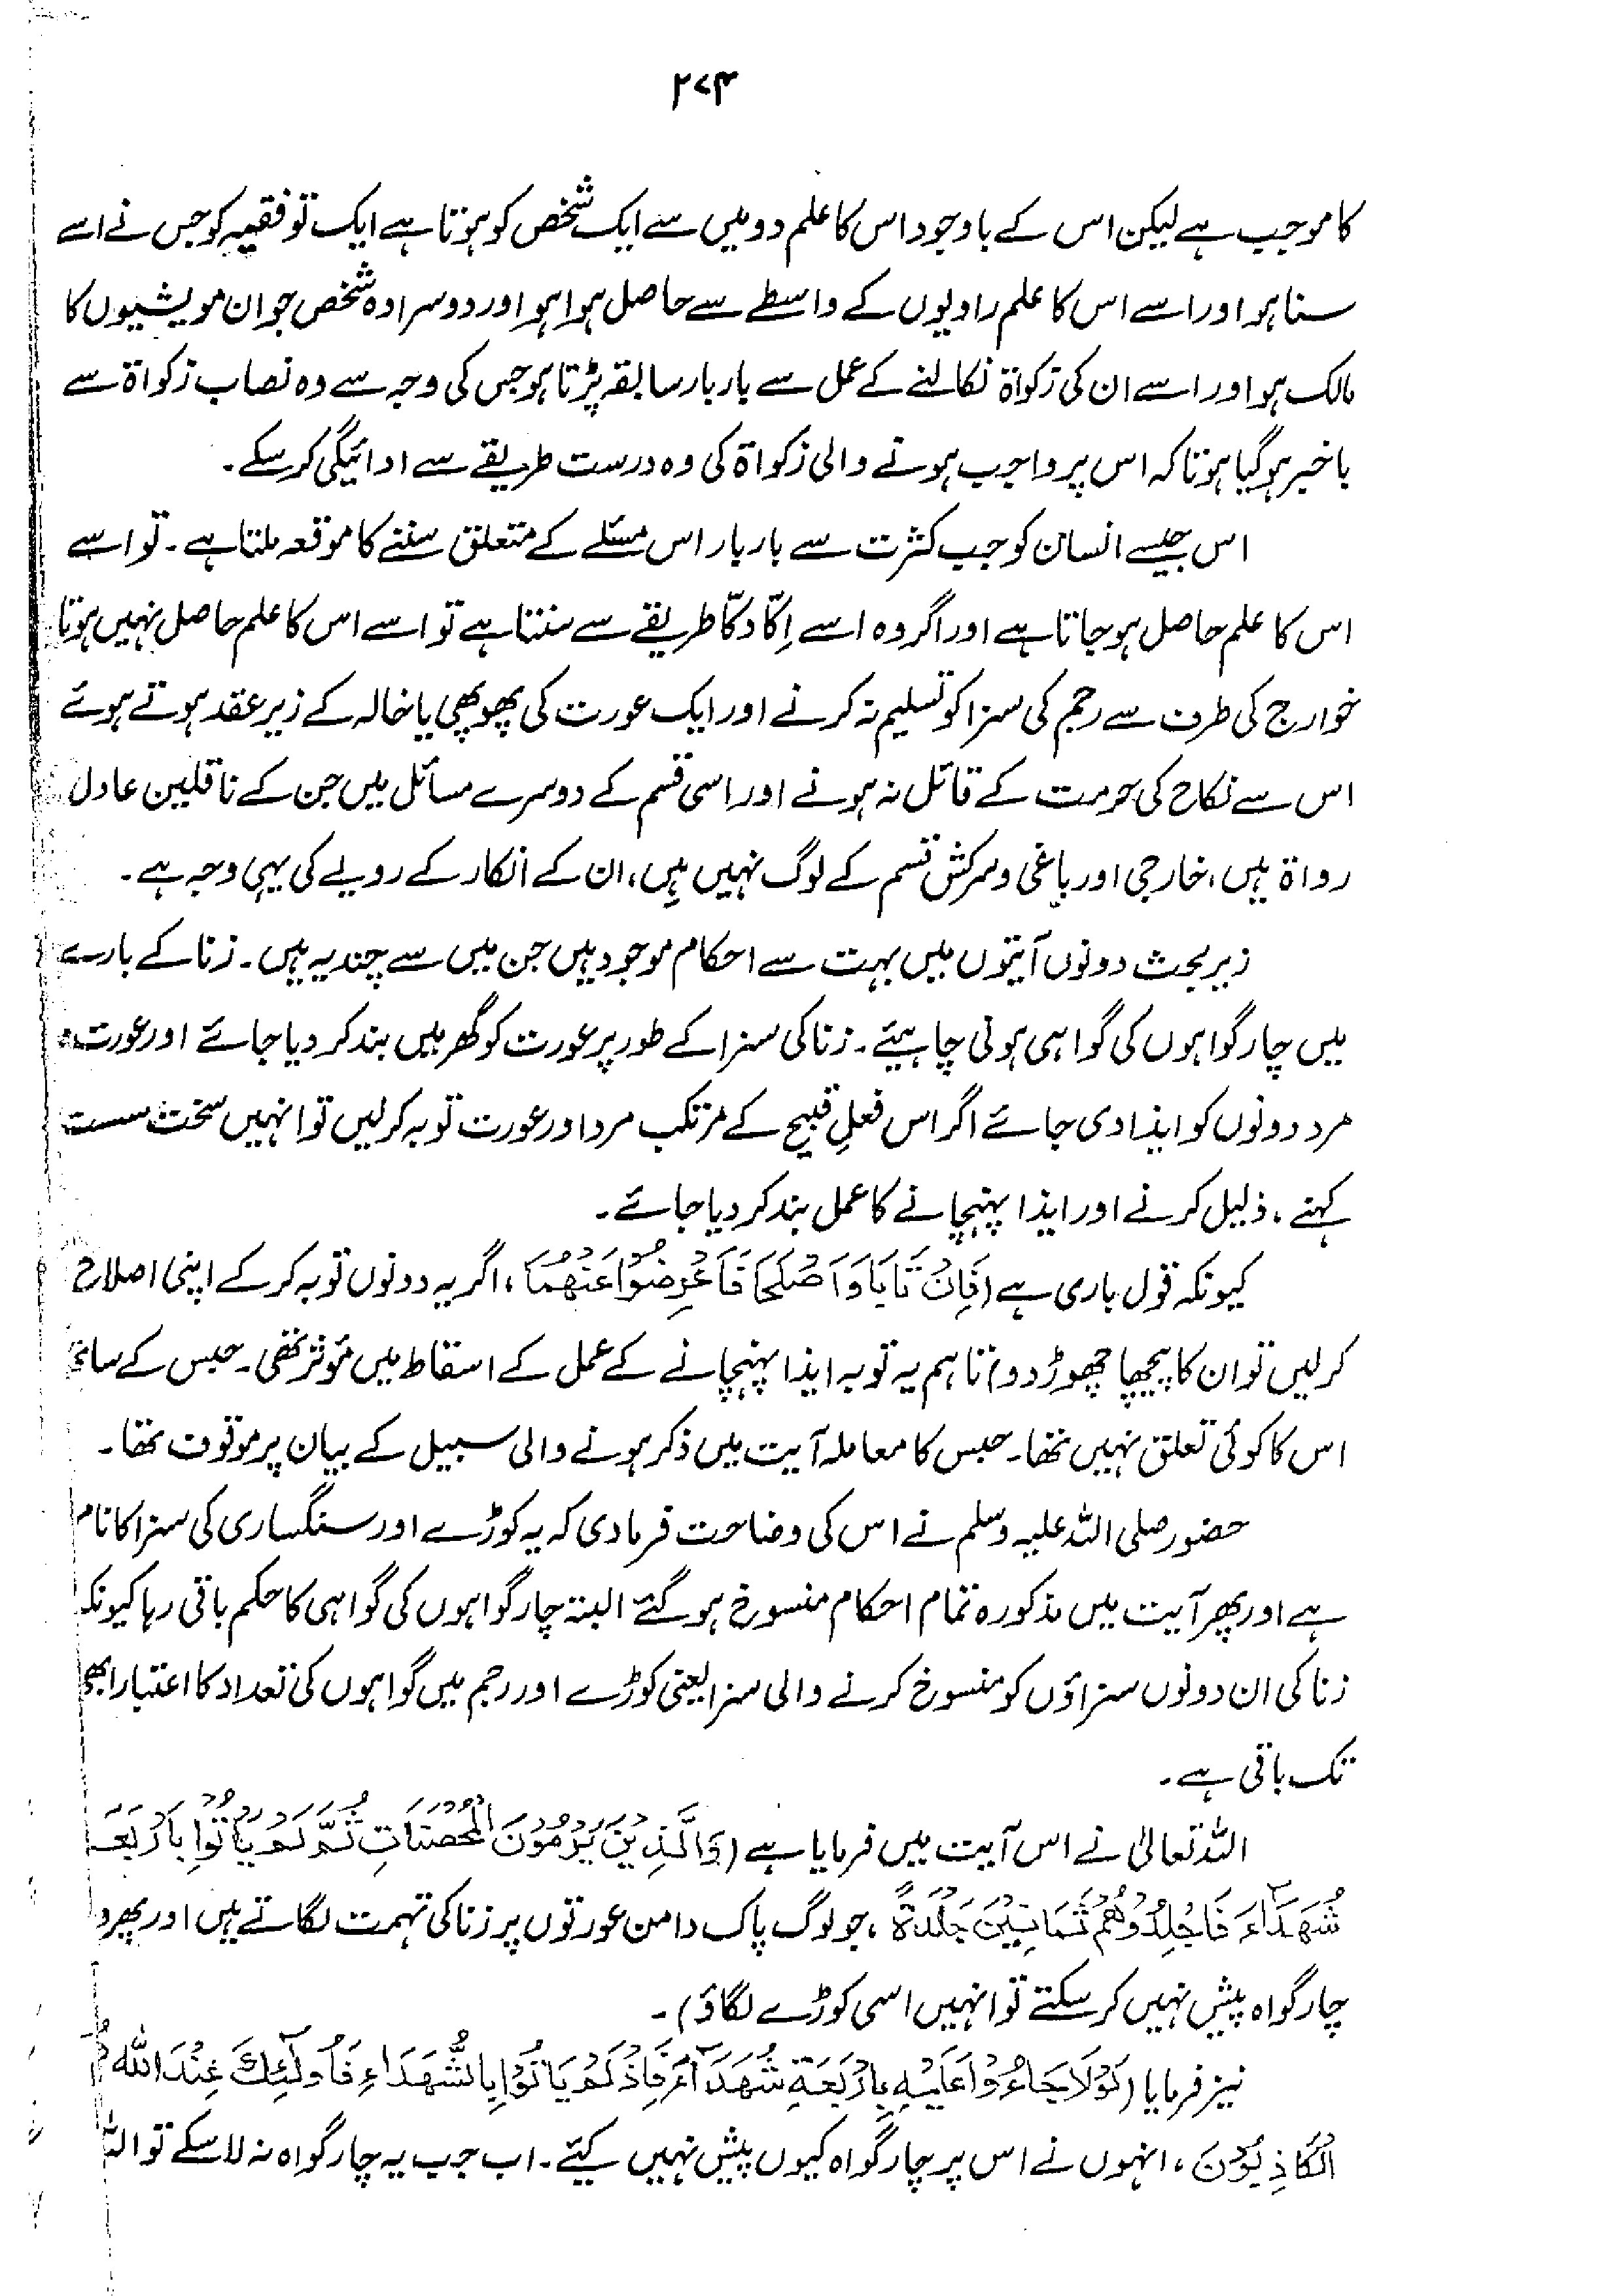 ۲۷۴
کا موجب ہے لیکن اس کے باوجود اس کا علم دو میں سے ایک شخص کو ہوتا ہے ایک تو فقیہ کو جس نے اسے
سنا ہو اور اسے اس کا علم راویوں کے واسطے سے حاصل ہوا ہو اور دوسرا وہ شخص جو ان مویشیوں کا
مالک ہو اور اسے ان کی زکواۃ نکالنے کے عمل سے بار بار سابقہ پڑتا ہو جس کی وجہ سے وہ نصاب زکواۃ سے
باخبر ہو گیا ہو تا کہ اس پر واجب ہونے والی زکواۃ کی وہ درست طریقے سے ادائیگی کر سکے۔
اس جیسے انسان کو جب کثرت سے بار بار اس مسئلے کے متعلق سننے کا موقعہ ملتا ہے۔ تو اسے
اس کا علم حاصل ہو جاتا ہے اور اگر وہ اسے اِکّا دکّا طریقے سے سنتا ہے تو اسے اس کا علم حاصل نہیں ہوتا
خوارج کی طرف سے رجم کی سزا کو تسلیم نہ کرنے اور ایک عورت کی پھوپھی یا خالہ کے زیر عقد ہوتے ہوئے
اس سے نکاح کی حرمت کے قائل نہ ہونے اور اسی قسم کے دوسرے مسائل میں جن کے ناقلین عادل
رواۃ ہیں، خارجی اور باغی و سرکش قسم کے لوگ نہیں ہیں، ان کے انکار کے رویے کی یہی وجہ ہے۔
زیر بحث دونوں آیتوں میں بہت سے احکام موجود ہیں جن میں سے چند یہ ہیں۔ زنا کے بارے
میں چار گواہوں کی گواہی ہونی چاہیئے۔ زنا کی سزا کے طور پر عورت کو گھر میں بند کر دیا جائے اور عورت،
مرد دونوں کو ایذا دی جائے اگر اس فعلِ قبیح کے مرتکب مرد اور عورت توبہ کر لیں تو انہیں سخت سست
کہنے، ذلیل کرنے اور ایذا پہنچانے کا عمل بند کر دیا جائے۔
کیونکہ قول باری ہے (فَاِنْ تَابَا وَاَصْلَحَا فَاَعْرِضُوْا عَنْهُمَا، اگر یہ دونوں توبہ کر کے اپنی اصلاح
کر لیں تو ان کا پیچھا چھوڑ دو) تاہم یہ توبہ ایذا پہنچانے کے عمل کے اسقاط میں مؤثر تھی۔ حبس کے ساتھ
اس کا کوئی تعلق نہیں تھا۔ حبس کا معاملہ آیت میں ذکر ہونے والی سبیل کے بیان پر موقوف تھا۔
حضور صلی اللہ علیہ وسلم نے اس کی وضاحت فرما دی کہ یہ کوڑے اور سنگساری کی سزا کا نام
ہے اور پھر آیت میں مذکورہ تمام احکام منسوخ ہو گئے البتہ چار گواہوں کی گواہی کا حکم باقی رہا کیونکہ
زنا کی ان دونوں سزاؤں کو منسوخ کرنے والی سزا یعنی کوڑے اور رجم میں گواہوں کی تعداد کا اعتبار ابھی
تک باقی ہے۔
اللہ تعالیٰ نے اس آیت میں فرمایا ہے (وَالَّذِيْنَ يَرْمُوْنَ الْمُحْصَنَاتِ ثُمَّ لَمْ يَأْتُوْا بِاَرْبَعَةِ
شُهَدَآءَ فَاجْلِدُوْهُمْ ثَمَانِيْنَ جَلْدَةً، جو لوگ پاک دامن عورتوں پر زنا کی تہمت لگاتے ہیں اور پھر وہ
چار گواہ پیش نہیں کر سکتے تو انہیں اسی کوڑے لگاؤ)۔
نیز فرمایا (لَوْلَا جَاءُوْا عَلَيْهِ بِاَرْبَعَةِ شُهَدَآءَ فَاِذْ لَمْ يَاْتُوْا بِالشُّهَدَاءِ فَاُولٰٓئِكَ عِنْدَ اللهِ هُمُ
الْكَاذِبُوْنَ، انہوں نے اس پر چار گواہ کیوں پیش نہیں کیئے۔ اب جب یہ چار گواہ نہ لا سکے تو اللہ